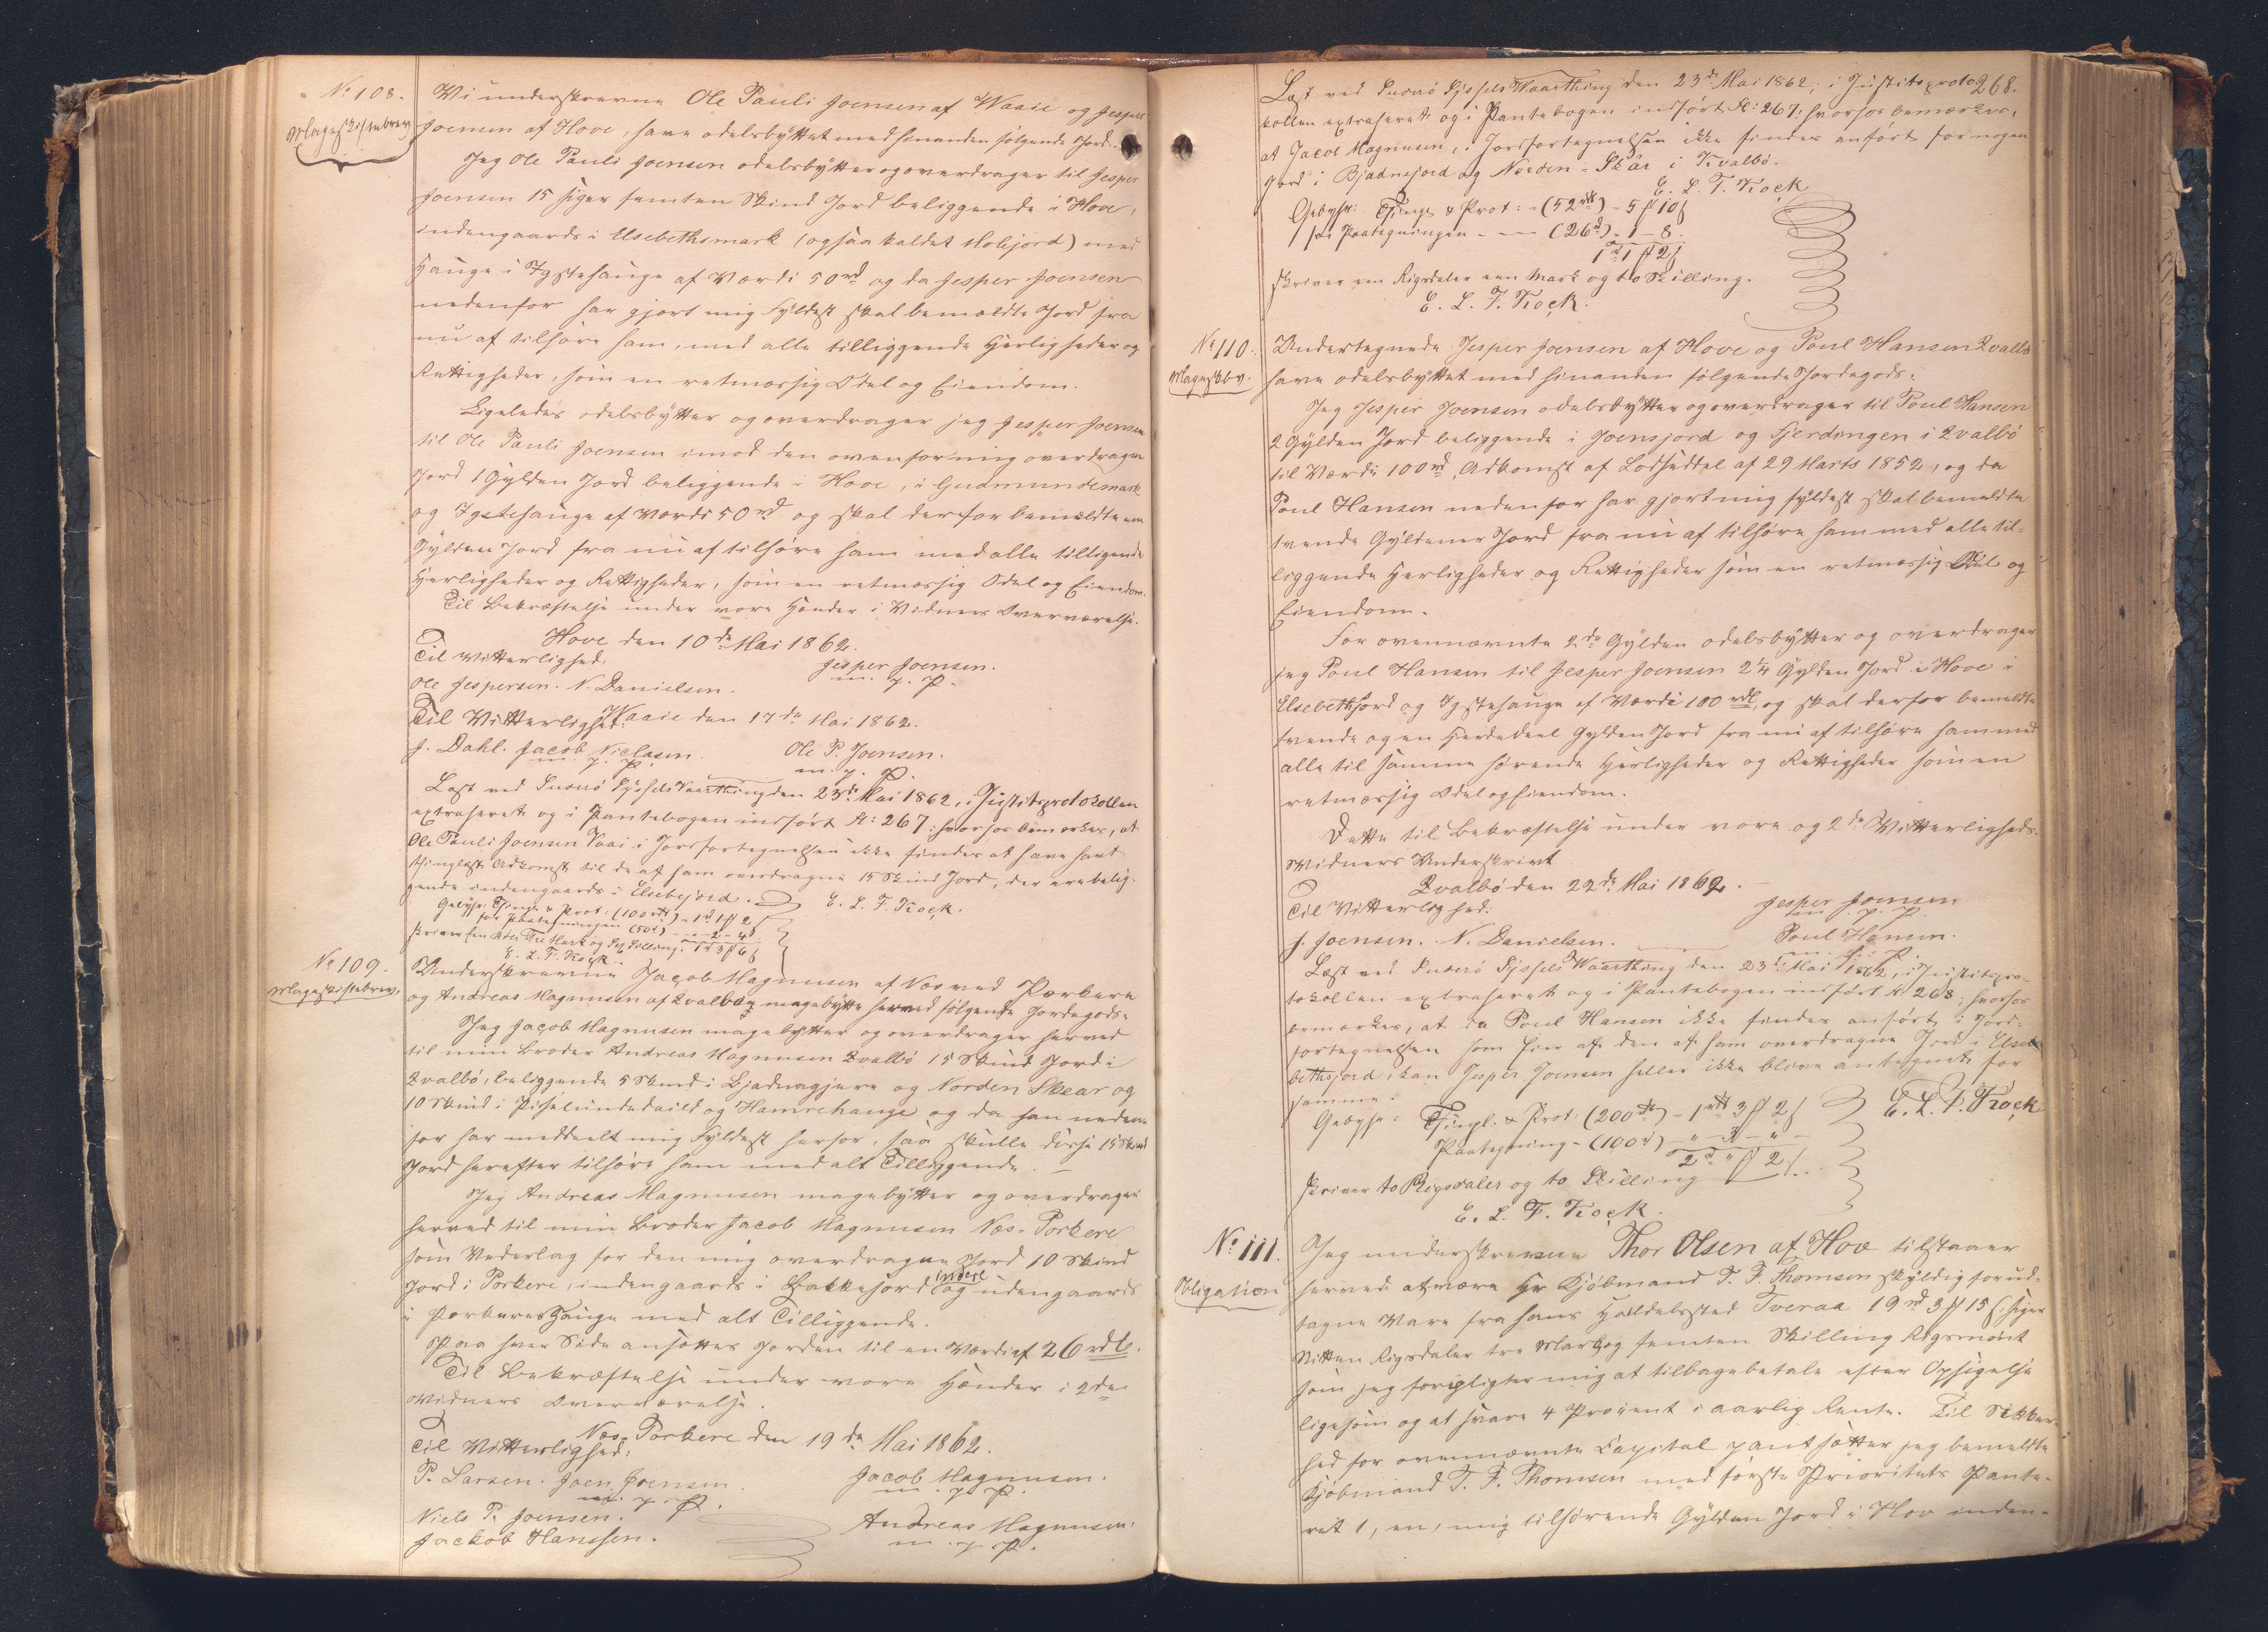 No 108.
Mageskiftebrev
Vi underskrevne Ole Pauli Joensen af Waaie og Jesper
Joensen af Hove, have odelsbyttet med hinanden følgende Jord:
Jeg Ole Pauli Joensen odelsbytter og overdrager til Jesper
Joensen 15 siger femten Skind Jord beliggende i Hove,
indengaards i Elsebethsmark (ogsaa kaldet Hobjord) med
Hauge i Ystehauge af Værdi 50 rd og da Jesper Joensen
nedenfor har gjort mig Fyldest skal bemældte Jord fra
nu af tilhøre ham, med alle tilliggende Herligheder og
Rettigheder, som en retmæssig Odel og Eiendom.
Ligeledes odelsbytter og overdrager jeg Jesper Joensen
til Ole Pauli Joensen imod den ovenfor mig overdragne
Jord 1 Gylden Jord beliggende i Hove, i Gudmundemark
og Ystehauge af Værdi 50 rd og skal derfor bemældte en
Gylden Jord fra nu af tilhøre ham med alle tilligende
Herligheder og Rettigheder, som en retmæssig Odel og Eiendom.
Til Bekræftelse under vore Hænder i Vidners Overværelse.
Hove den 10de Mai 1862.
Til Vitterlighed: Jesper Joensen.
Ole Jespersen. N. Danielsen. m. p. P.
Waaie den 17de Mai 1862.
Til Vitterlighed:
J. Dahl. Jacob Niclasen. Ole P. Joensen.
m. p. P. m. p. P.
Læst ved Suderø Syssels Vaarthing den 23de Mai 1862, i Justitsprotokollen
extraheret og i Pantebogen indført A: 267; hvorhos bemærkes, at
Ole Pauli Joensen Vaai i Jordfortegnelsen ikke findes at have havt
thinglæst Adkomst til de af ham overdragne 15 Skind Jord, der ere belig-
gende indengaards i Elsebejord. E. L. T. Kock.
Gebyhr: Thingl & Prot: (100 rd) - 1 rd 1 ß 2
for Paategningen (50 rd) - - 2 - 4
skriver een Rdlr Tre Mark og Sex Skilling. 1 rd 3 ß 6
E. L. T. Kock.
No 109.
Mageskiftebrev,
Underskrevne Jacob Magnusen af Næs ved Porkere
og Andreas Magnusen af Qvalbø magebytte herved følgende Jordegods.
Jeg Jacob Magnusen magebytter og overdrager herved
til min Broder Andreas Magnusen Qvalbø 15 Skind Jord i
Qvalbø, beliggende 5 Skind i Bjadnagjære og Norden Skear og
10 Skind i og Hamrehauge og da han neden-
for har meddeelt mig Fyldest herfor, saa skulle disse 15 Skind
Jord herefter tilhøre ham med alt Tilliggende.
Jeg Andreas Magnusen magebytter og overdrager
herved til min Broder Jacob Magnusen Næs-Porkere
som Vederlag for den mig overdragne Jord 10 Skind
Jord i Porkere, indengaards i Bakkejord og indere udengaards
i Porkereshauge med alt Tilliggende.
Paa hver Side ansættes Jorden til en Værdi af 26 rdl.
Til Bekræftelse under vore Hænder i 2de
Vidners Overværelse.
Næs-Porkere den 19de Mai 1862.
Til Vitterlighed:
P. Larsen. Joen Joensen. Jacob Magnusen.
m. p. P. m. p. P.
Niels P. Joensen. Andreas Magnusen.
Jackob Hanssen. m. p. P.
268.
Læst ved Suderø Syssels Vaarthing den 23de Mai 1862, i Justitsproto-
kollen extraheret og i Pantebogen indført A: 267; hvorhos bemærkes,
at Jacob Magnusen, i Jordfortegnelsen ikke findes anført for nogen
Jord i Bjadnejord og Norden-Skår i Kvalbø.
E. L. T. Kock
Gebyhr: Thingl & Prot: - (52 rdl) - 5 ß 10
for Paategningen - - (26 rd) - 1 - 8.
1 rd 1 ß 2
skriver een Rigsdaler een Mark og to Skilling.
E. L. T. Kock.
No 110.
Mageskbv.
Undertegnede Jesper Joensen af Hove og Poul Hansen Qvalbø
have odelsbyttet med hinanden følgende Jordegods:
Jeg Jesper Joensen odelsbytter og overdrager til Poul Hansen
2 Gylden Jord beliggende i Joensjord og Fjerdingen i Qvalbø
til Værdi 100 rd, Adkomst af Lodseddel af 29 Marts 1852, og da
Poul Hansen nedenfor har gjort mig fyldest skal bemældte
tvende Gyldener Jord fra nu af tilhøre ham med alle til-
liggende Herligheder og Rettigheder som en retmæssig Odel og
Eiendom.
For ovennævnte 2de Gylden odelsbytter og overdrager
jeg Poul Hansen til Jesper Joensen 2 1/4 Gylden Jord i Hove i
Elsebethjord og Ystehauge af Værdi 100 rdl, og skal derfor bemeldte
tvende og en Fjerdedeel Gylden Jord fra nu af tilhøre ham med
alle til samme hørende Herligheder og Rettigheder som en
retmæssig Odel og Eiendom.
Dette til Bekræftelse under vore og 2de Vitterligheds-
Vidners Underskrivt
Qvalbø den 22de Mai 1862.
Til Vitterlighed: Jesper Joensen
m. p. P.
J. Joensen. N. Danielsen. Poul Hansen.
m. p. P.
Læst ved Suderø Syssels Vaarthing den 23de Mai 1862, i Justitspro-
tokollen extraheret og i Pantebogen indført A: 268; hvorhos
bemærkes, at da Poul Hansen ikke findes anført i Jord-
fortegnelsen som Eier af den af ham overdragne Jord i Else-
bethsjord, kan Jesper Joensen heller ikke blive antegnet for
samme.
Gebyhr: Thingl. & Prot: (200 rdl) - 1 rdl 3 ß 2 E. L. T. Kock
Paategning - (100 rd) - " - 3 - " -
2 rd " ß 2
skriver to Rigsdaler og to Skilling
E. L. T. Kock.
No 111.
Obligation
Jeg underskrevne Thor Olsen af Hov tilstaaer
herved at være Hr Kjøbmand T. F. Thomsen skyldig for ud-
tagne Vare fra hans Handelssted Tveraa 19 rd 3 ß 15, siger
Nitten Rigsdaler tre Mark og femten Skilling Rigsmønt
som jeg forpligter mig at tilbagebetale efter Opsigelse
ligesom og at svare 4 Procent i aarlig Rente. Til Sikker-
hed for ovennævnte Capital pantsætter jeg bemeldte
Kjøbmand T. F. Thomsen med første Prioritets Pante-
ret 1, en, mig tilhørende Gylden Jord i Hov inden-